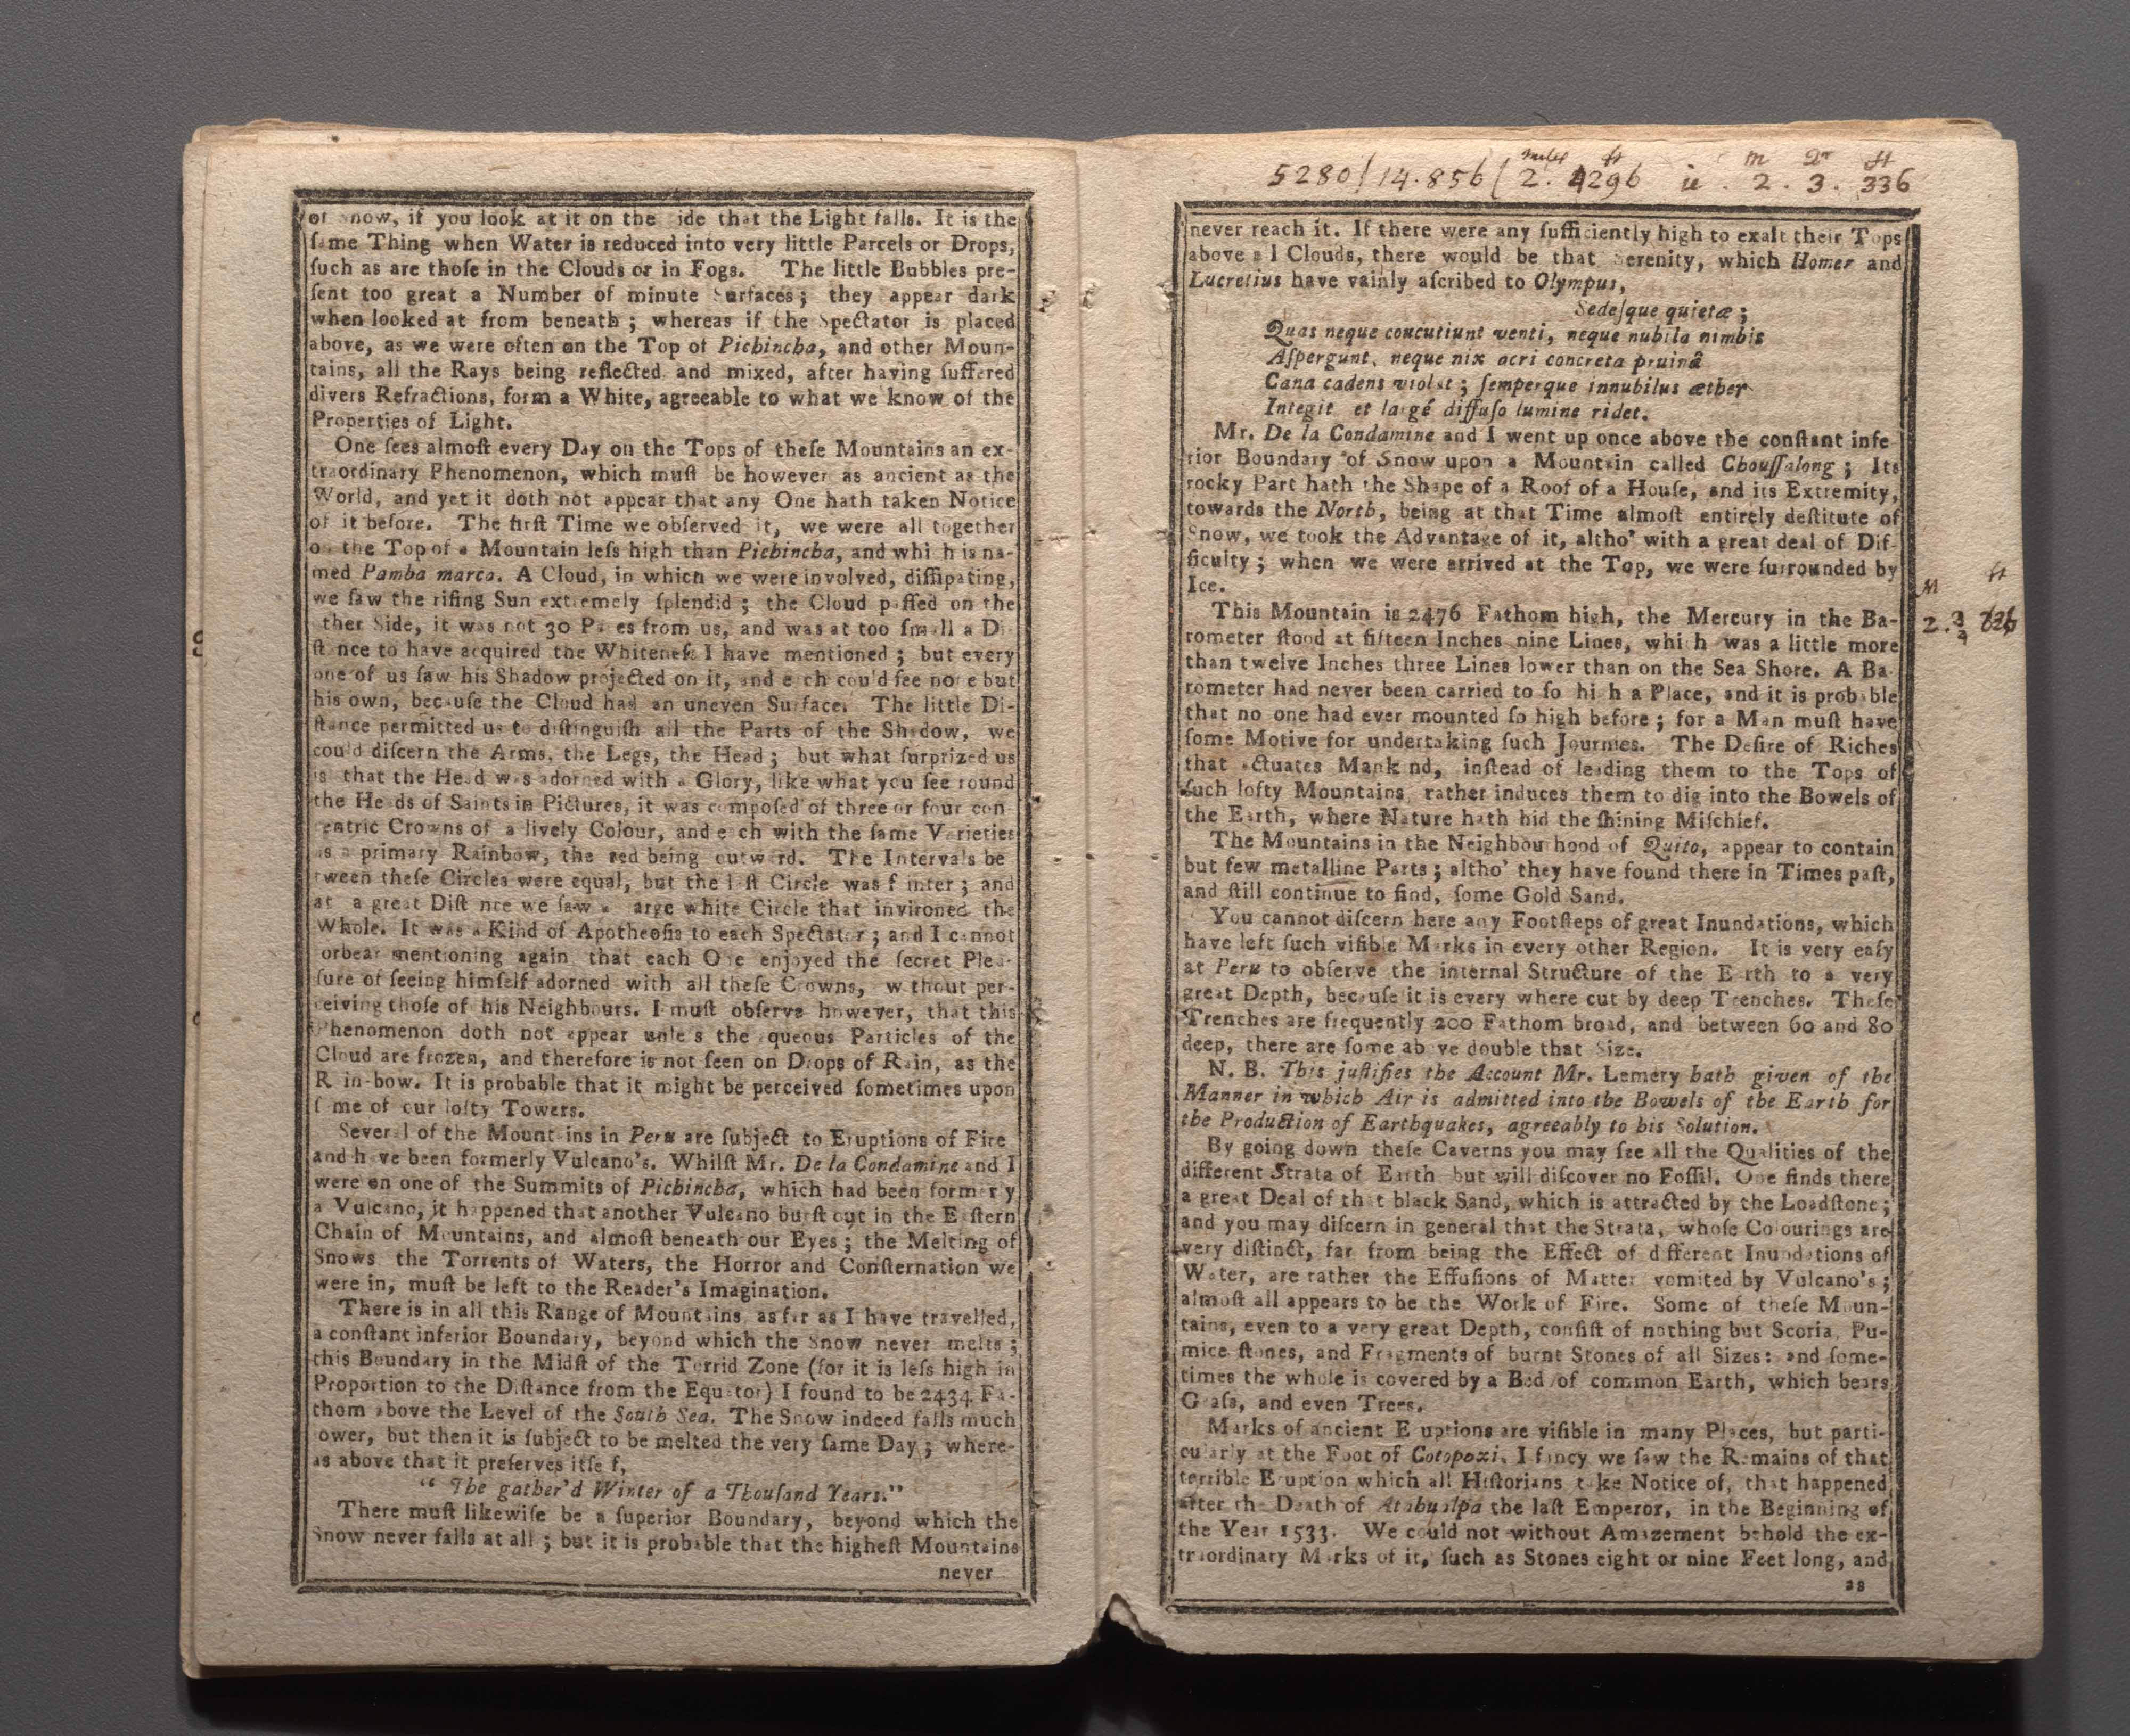 of Snow, if you look at it on the ide that the Light falls. It is the
ſame Thing when Water is reduced into very little Parcels or Drops,
ſuch as are thoſe in the Clouds or in Fogs. The little Bubbles pre-
ſent too great a Number of minute Surfaces; they appear dark
when looked at from beneath; whereas if the Spectator is placed
above, as we were often on the Top of Pichincha, and other Moun-
tains, all the Rays being reflected and mixed, after having ſuffered
divers Refractions, form a White, agreeable to what we know of the
Properties of Light.
One ſees almoſt every Day on the Tops of theſe Mountains an ex-
traordinary Phenomenon, which muſt be however as ancient as the
World, and yet it doth not appear that any One hath taken Notice
of it before. The firſt Time we obſerved it, we were all together
on the Top of a Mountain leſs high than Pichincha, and whi h is na-
med Pamba marca. A Cloud, in which we were involved, diſſipating,
we ſaw the riſing Sun extremely ſplendid; the Cloud paſſed on the
ther Side, it was not 30 Paces from us, and was at too ſmall a Di-
ſtance to have acquired the Whiteneſs I have mentioned; but every
one of us ſaw his Shadow projected on it, and each cou'd ſee none but
his own, becauſe the Cloud had an uneven Surface. The little Di-
ſtance permitted us to diſtinguiſh all the Parts of the Shadow, we
could diſcern the Arms, the Legs, the Head; but what ſurprized us
is that the Head was adorned with a Glory, like what you ſee round
the Heads of Saints in Pictures, it was compoſed of three or four con
centric Crowns of a lively Colour, and each with the ſame Varieties
as a primary Rainbow, the red being outward. The Intervals be
tween theſe Circles were equal, but the laſt Circle was fainter; and
at a great Diſtance we ſaw a large white Circle that invironed the
Whole. It was a Kind of Apotheoſis to each Spectator; and I cannot
forbear mentioning again, that each One enjoyed the ſecret Plea-
ſure of ſeeing himſelf adorned with all theſe Crowns, without per-
ceiving thoſe of his Neighbours. I muſt obſerve however, that this
Phenomenon doth not appear unleſs the aqueous Particles of the
Cloud are frozen, and therefore is not ſeen on Drops of Rain, as the
Rain-bow. It is probable that it might be perceived ſometimes upon
ſome of our lofty Towers.
Several of the Mountains in Peru are ſubject to Eruptions of Fire
and have been formerly Vulcano's. Whilſt Mr. De la Condamine and I
were on one of the Summits of Pichincha, which had been formerly
a Vulcano, it happened that another Vulcano burſt out in the Eaſtern
Chain of Mountains, and almoſt beneath our Eyes; the Melting of
Snows the Torrents of Waters, the Horror and Conſternation we
were in, muſt be left to the Reader's Imagination.
There is in all this Range of Mountains, as far as I have travelled,
a conſtant inferior Boundary, beyond which the Snow never melts;
this Boundary in the Midſt of the Torrid Zone (for it is leſs high in
Proportion to the Diſtance from the Equator) I found to be 2434 Fa-
thom above the Level of the South Sea. The Snow indeed falls much
lower, but then it is ſubject to be melted the very ſame Day; where-
as above that it preſerves itſelf,
“ The gather'd Winter of a Thouſand Years.”
There muſt likewiſe be a ſuperior Boundary, beyond which the
Snow never falls at all; but it is probable that the higheſt Mountains
never
miles ft m qr ft
5280/14.856(2. 4296 ie . 2. 3. 336
never reach it. If there were any ſufficiently high to exalt their Tops
above all Clouds, there would be that Serenity, which Homer and
Lucretius have vainly aſcribed to Olympus,
Sedeſque quietæ;
Quas neque coucutiunt venti, neque nubila nimbis
Aſpergunt, neque nix acri concreta pruinâ
Cana cadens violat; ſemperque innubilus æther
Integit et largé diffuſo lumine ridet.
Mr. De la Condamine and I went up once above the conſtant infe
rior Boundary of Snow upon a Mountain called Chouſſalong; Its
rocky Part hath the Shape of a Roof of a Houſe, and its Extremity,
towards the North, being at that Time almoſt entirely deſtitute of
Snow, we took the Advantage of it, altho' with a great deal of Dif-
ficulty; when we were arrived at the Top, we were ſurrounded by
Ice.
M ft
This Mountain is 2476 Fathom high, the Mercury in the Ba-
2.
rometer ſtood at fifteen Inches nine Lines, which was a little more
than twelve Inches three Lines lower than on the Sea Shore. A Ba-
rometer had never been carried to ſo high a Place, and it is probable
that no one had ever mounted ſo high before; for a Man muſt have
ſome Motive for undertaking ſuch Journies. The Deſire of Riches
that actuates Mankind, inſtead of leading them to the Tops of
ſuch lofty Mountains, rather induces them to dig into the Bowels of
the Earth, where Nature hath hid the ſhining Miſchief.
The Mountains in the Neighbourhood of Quito, appear to contain
but few metalline Parts; altho' they have found there in Times paſt,
and ſtill continue to find, ſome Gold Sand.
You cannot diſcern here any Footſteps of great Inundations, which
have left ſuch viſible Marks in every other Region. It is very eaſy
at Peru to obſerve the internal Structure of the Earth to a very
great Depth, becauſe it is every where cut by deep Trenches. Theſe
Trenches are frequently 200 Fathom broad, and between 60 and 80
deep, there are ſome above double that Size.
N. B. This juſtifies the Account Mr. Lemery hath given of the
Manner in which Air is admitted into the Bowels of the Earth for
the Production of Earthquakes, agreeably to his Solution.
By going down theſe Caverns you may ſee all the Qualities of the
different Strata of Earth but will diſcover no Foſſil. One finds there
a great Deal of that black Sand, which is attracted by the Loadſtone;
and you may diſcern in general that the Strata, whoſe Colourings are
very diſtinct, far from being the Effect of different Inundations of
Water, are rather the Effuſions of Matter vomited by Vulcano's;
almoſt all appears to be the Work of Fire. Some of theſe Moun-
tains, even to a very great Depth, conſiſt of nothing but Scoria, Pu-
mice ſtones, and Fragments of burnt Stones of all Sizes: and ſome-
times the whole is covered by a Bed of common Earth, which bears
Graſs, and even Trees.
Marks of ancient Eruptions are viſible in many Places, but parti-
cularly at the Foot of Cotopoxi. I fancy we ſaw the Remains of that
terrible Eruption which all Hiſtorians take Notice of, that happened
after the Death of Atabualpa the laſt Emperor, in the Beginning of
the Year 1533. We could not without Amazement behold the ex-
traordinary Marks of it, ſuch as Stones eight or nine Feet long, and
as